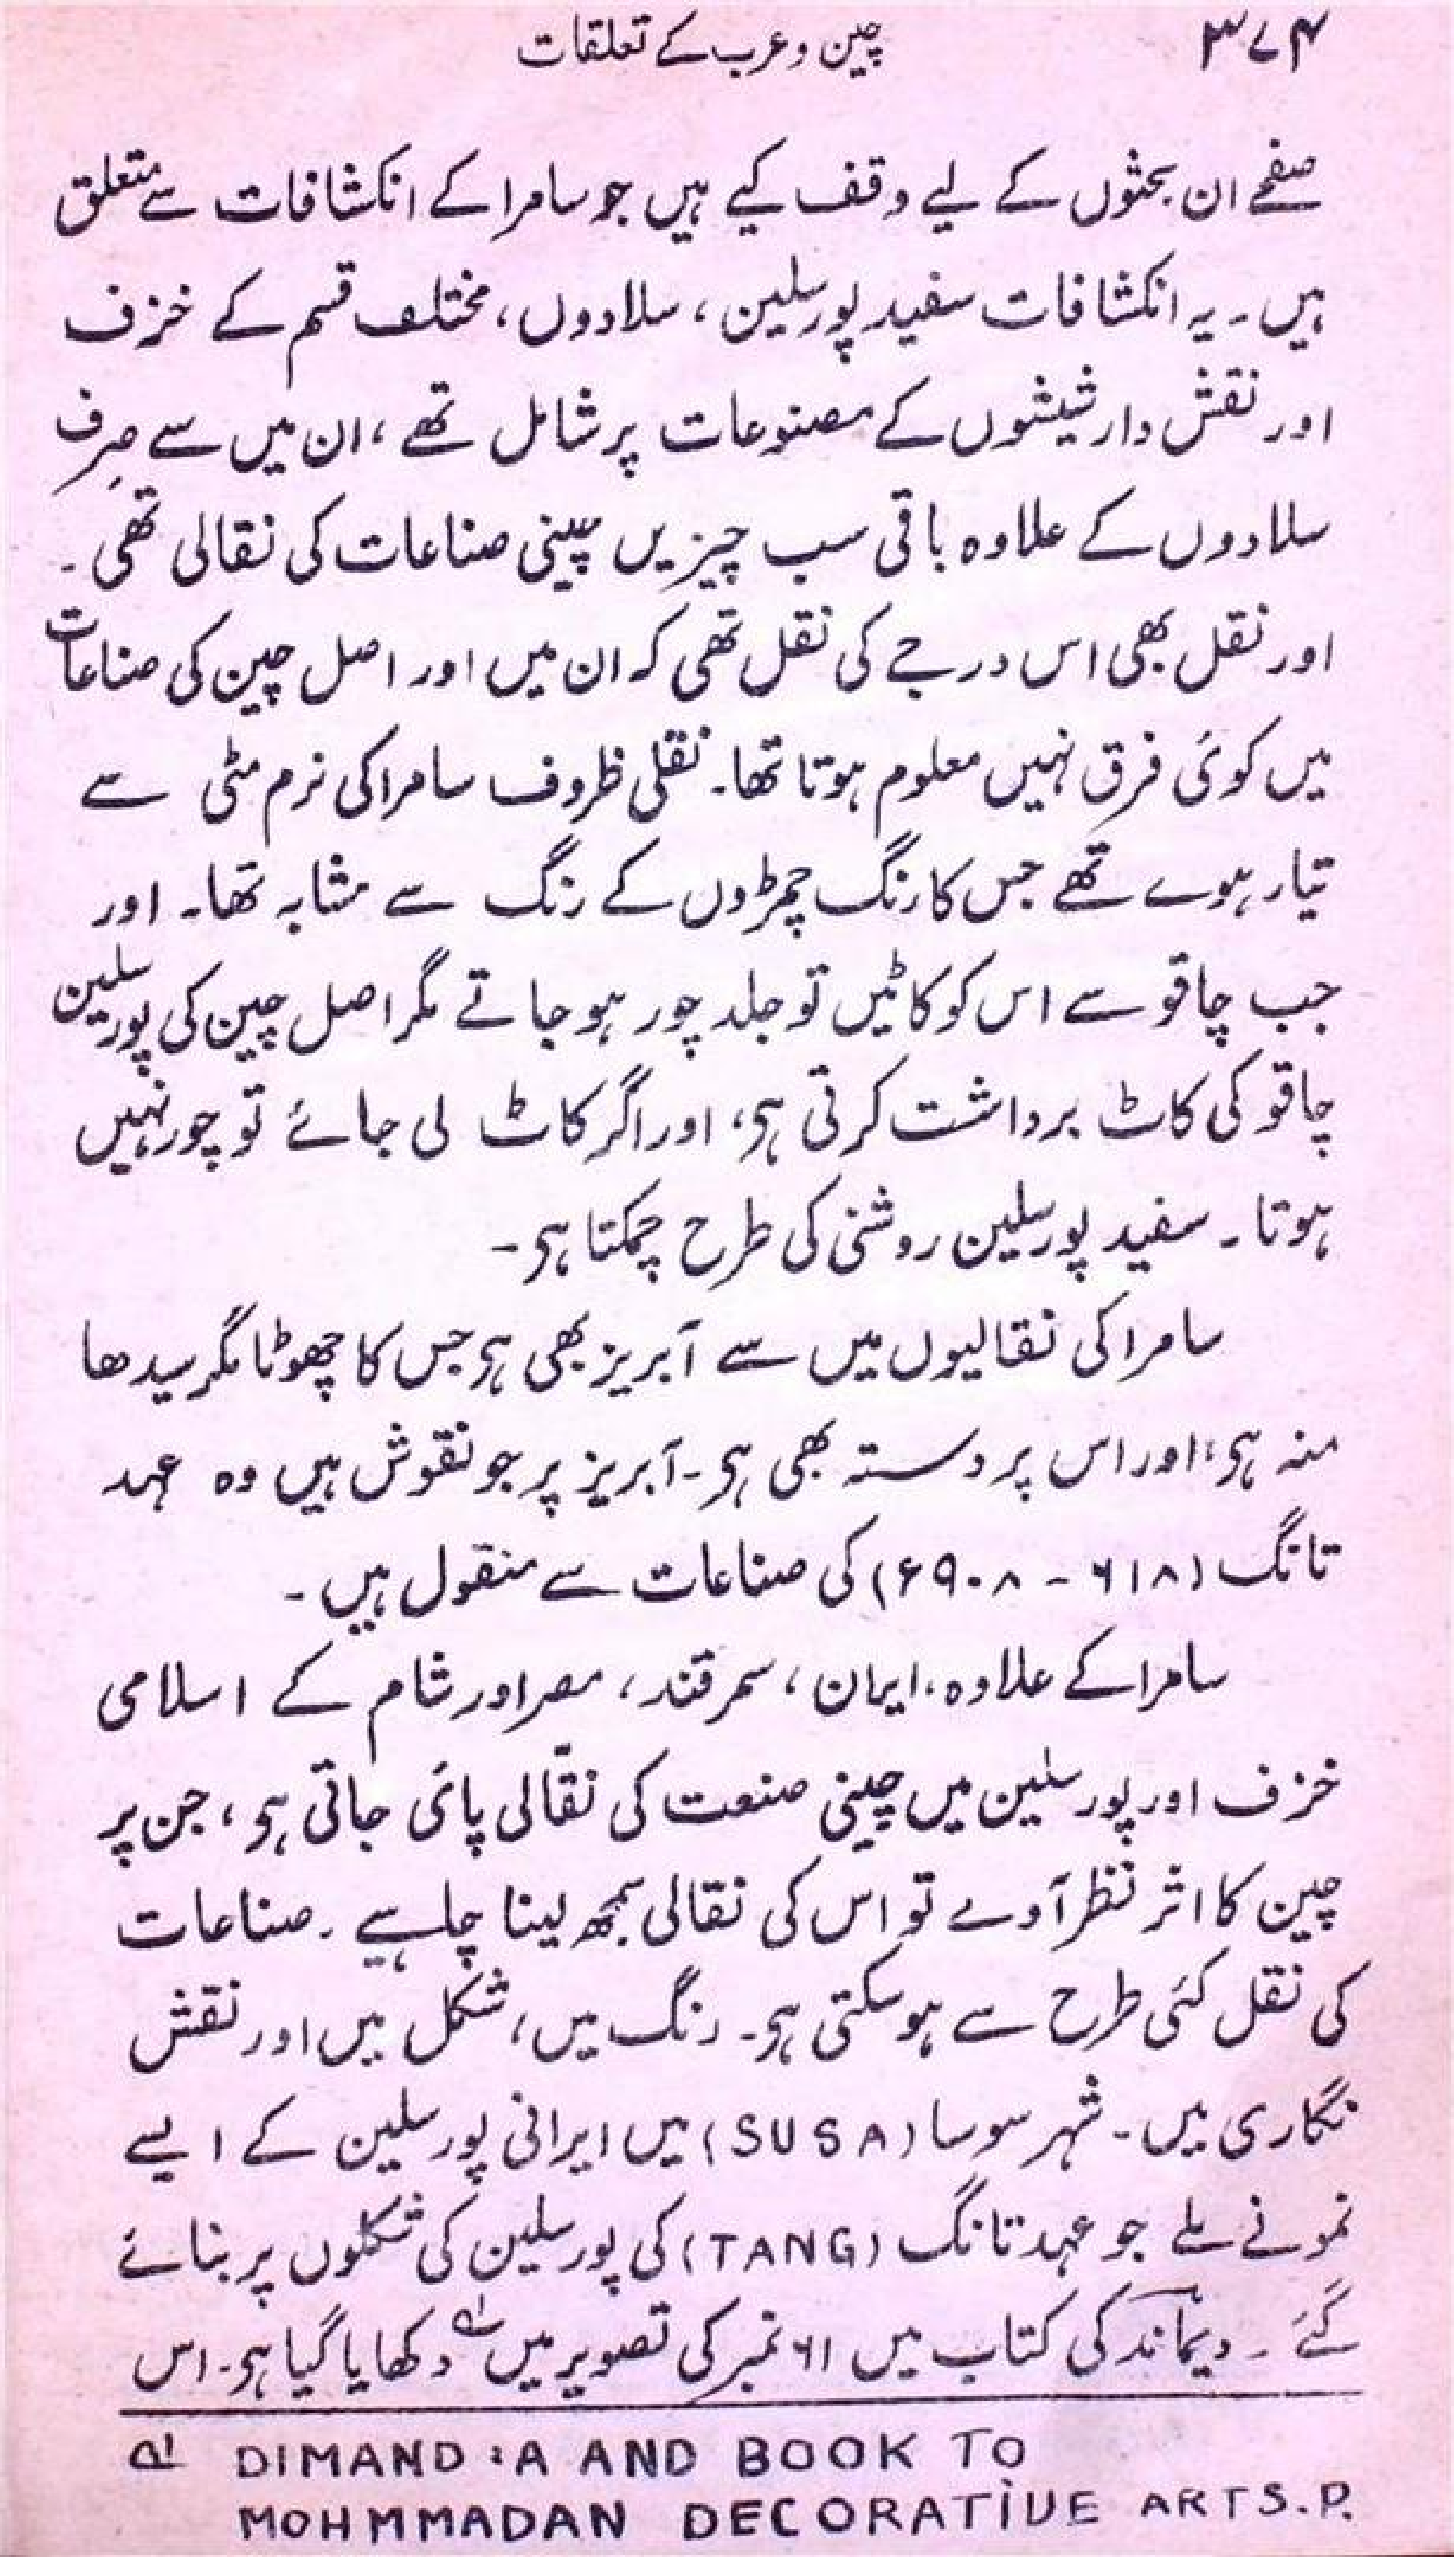 ۳۷۴ چین و عرب کے تعلقات
صفحے ان بحثوں کے لیے وقف کیے ہیں جو سامرا کے انکشافات سے متعلق
ہیں۔ یہ انکشافات سفید پورسلین، سلادوں، مختلف قسم کے خزف
اور نقش دار شیشوں کے مصنوعات پر شامل تھے، ان میں سے صِرف
سلادوں کے علاوہ باقی سب چیزیں چینی صناعات کی نقالی تھی۔
اور نقل بھی اس درجے کی نقل تھی کہ ان میں اور اصل چین کی صناعات
میں کوئی فرق نہیں معلوم ہوتا تھا۔ نقلی ظروف سامرا کی نرم مٹی سے
تیار ہوے تھے جس کا رنگ چمڑوں کے رنگ سے مشابہ تھا۔ اور
جب چاقو سے اس کو کاٹیں تو جلد چور ہو جاتے مگر اصل چین کی پورسلین
چاقو کی کاٹ برداشت کرتی ہی، اور اگر کاٹ لی جائے تو چور نہیں
ہوتا۔ سفید پورسلین روشنی کی طرح چمکتا ہی۔
سامرا کی نقالیوں میں سے آبریز بھی ہی جس کا چھوٹا مگر سیدھا
منہ ہی، اور اس پر دستہ بھی ہی۔ آبریز پر جو نقوش ہیں وہ عہد
تانگ (۶۱۸ - ۹۰۸ء) کی صناعات سے منقول ہیں۔
سامرا کے علاوہ، ایران، سمرقند، مصر اور شام کے اسلامی
خزف اور پورسلین میں چینی صنعت کی نقّالی پائی جاتی ہی، جن پر
چین کا اثر نظر آوے تو اس کی نقالی سمجھ لینا چاہیے۔ صناعات
کی نقل کئی طرح سے ہو سکتی ہی۔ رنگ میں، شکل میں اور نقش
نگاری میں۔ شہر سوسا (SUSA) میں ایرانی پورسلین کے ایسے
نمونے ملے جو عہد تانگ (TANG) کی پورسلین کی شکلوں پر بنائے
گئے۔ دیماند کی کتاب میں ۶۱ نمبر کی تصویر میں لہ دکھایا گیا ہی۔ اس
لہ DIMAND : A AND BOOK TO
MOHMMADAN DECORATIVE ARTS. P.